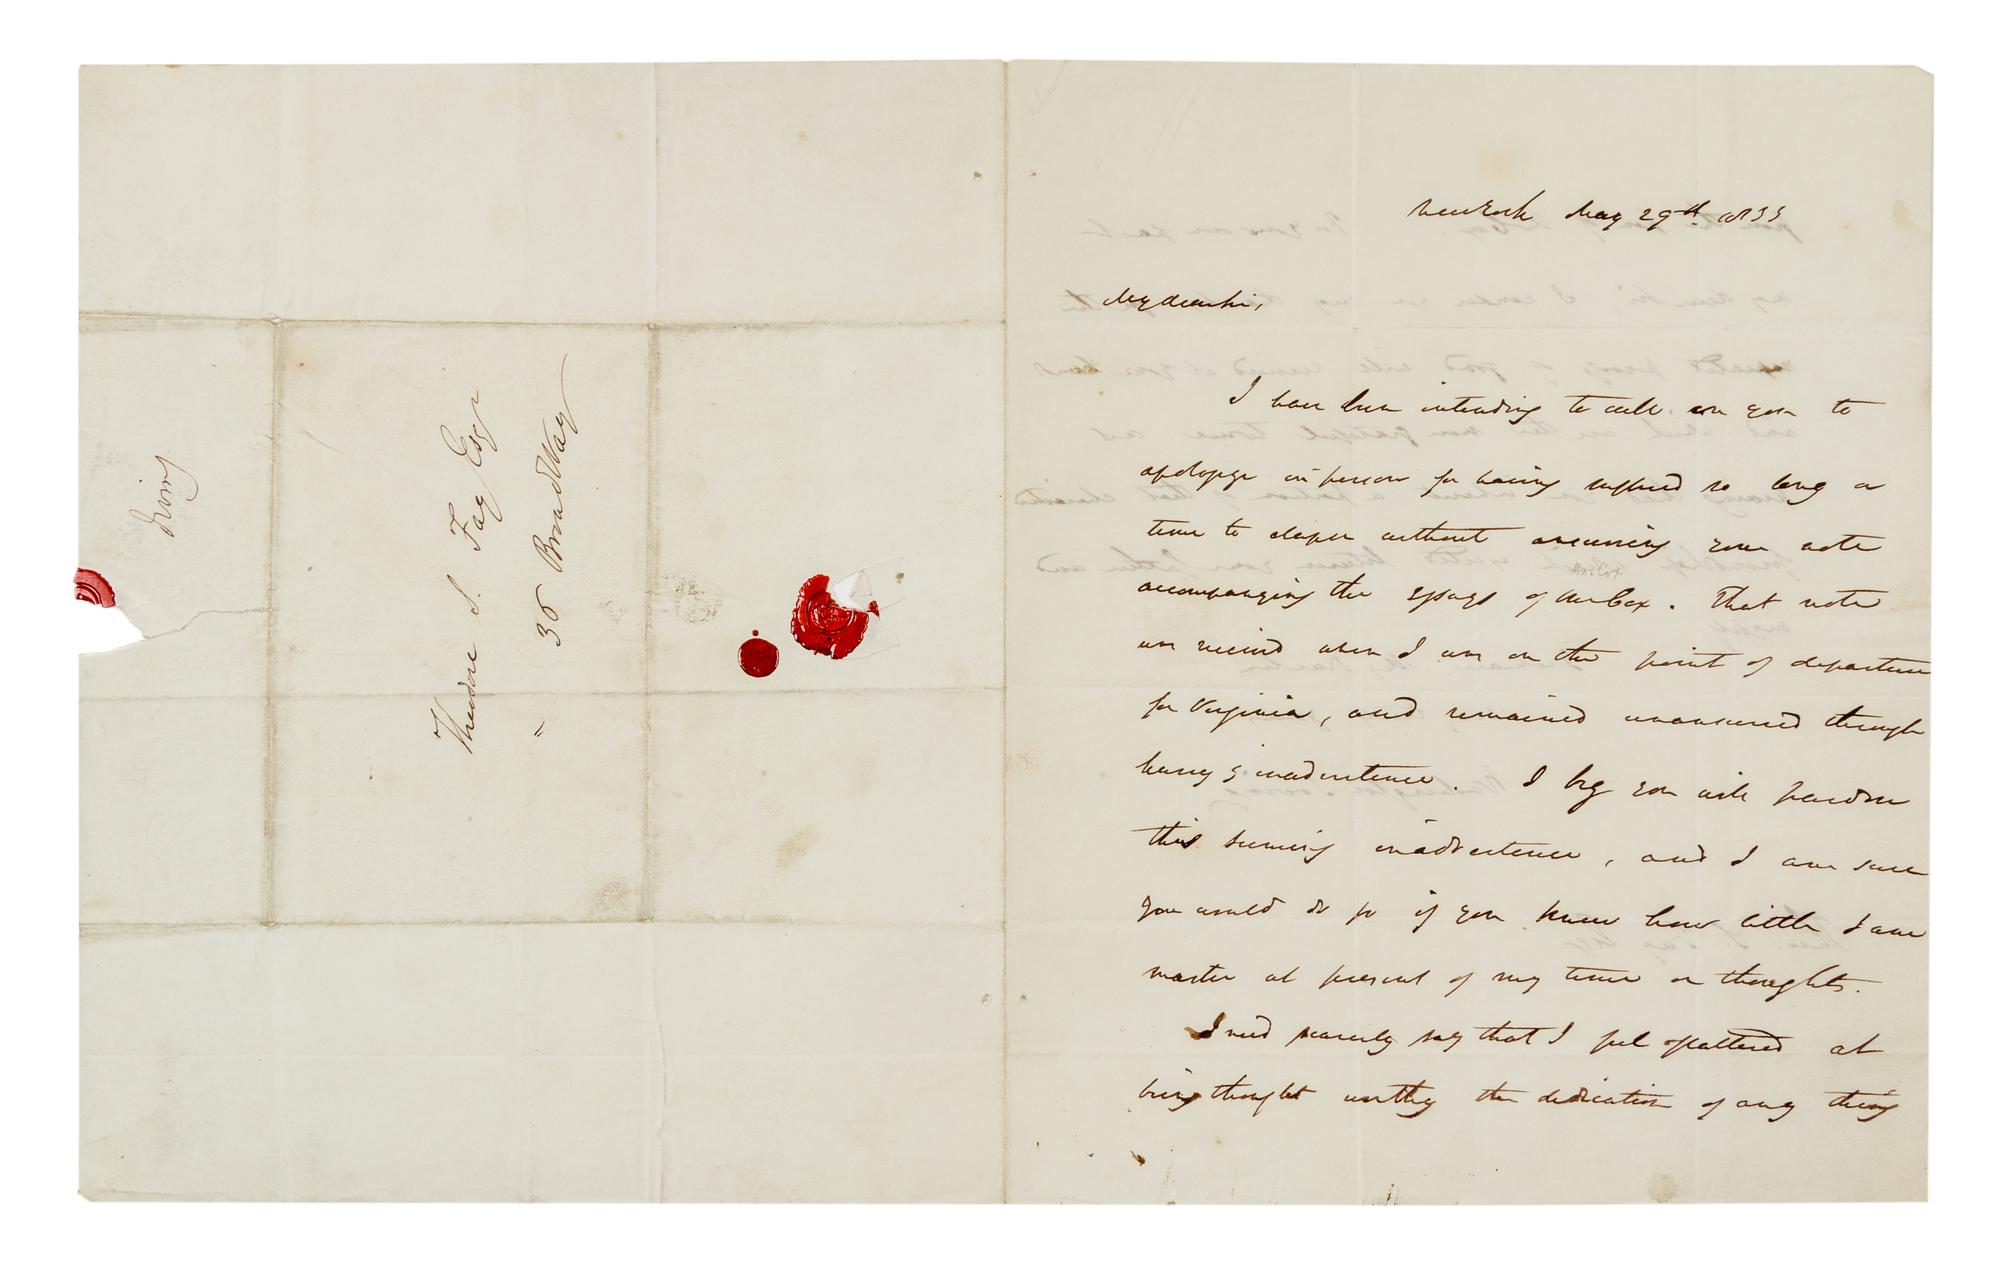 Irving
Theodore S. Fay Esqr
36 BroadWay
=
New York May 29th 1833
My dear Sir,
I have been intending to call on you to
apologize in person for having suffered so long a
time to elapse without answering your note
Mr Cox
accompanying the essays of Mr Cox. That note
was received when I was on the point of departure
for Virginia, and remained unanswered through
hurry & inadvertence. I beg you will pardon
this seeming inadvertence, and I am sure
you would do so if you knew how little I am
master at present of my time or thoughts.
I need scarcely say that I feel flattered at
being thought worthy the dedication of any thing